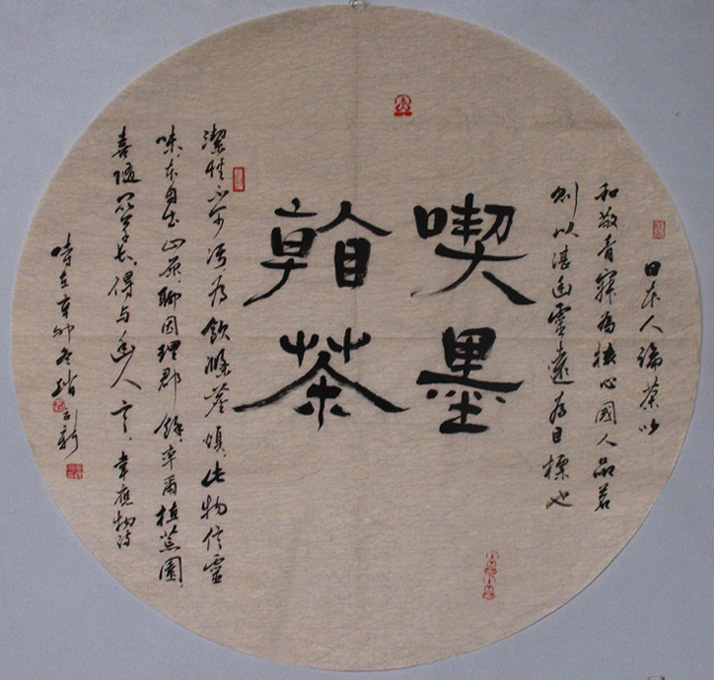 日本人論茶以
和敬清寂為核心國人品茗
則以湛幽靈遠為目標也
喫墨
翰茶
潔性不可污為飲滌塵煩此物信靈
味本自出山原聊因理郡餘率爾植荒園
喜隨眾草長得与幽人言韋應物詩
時在辛卯冬